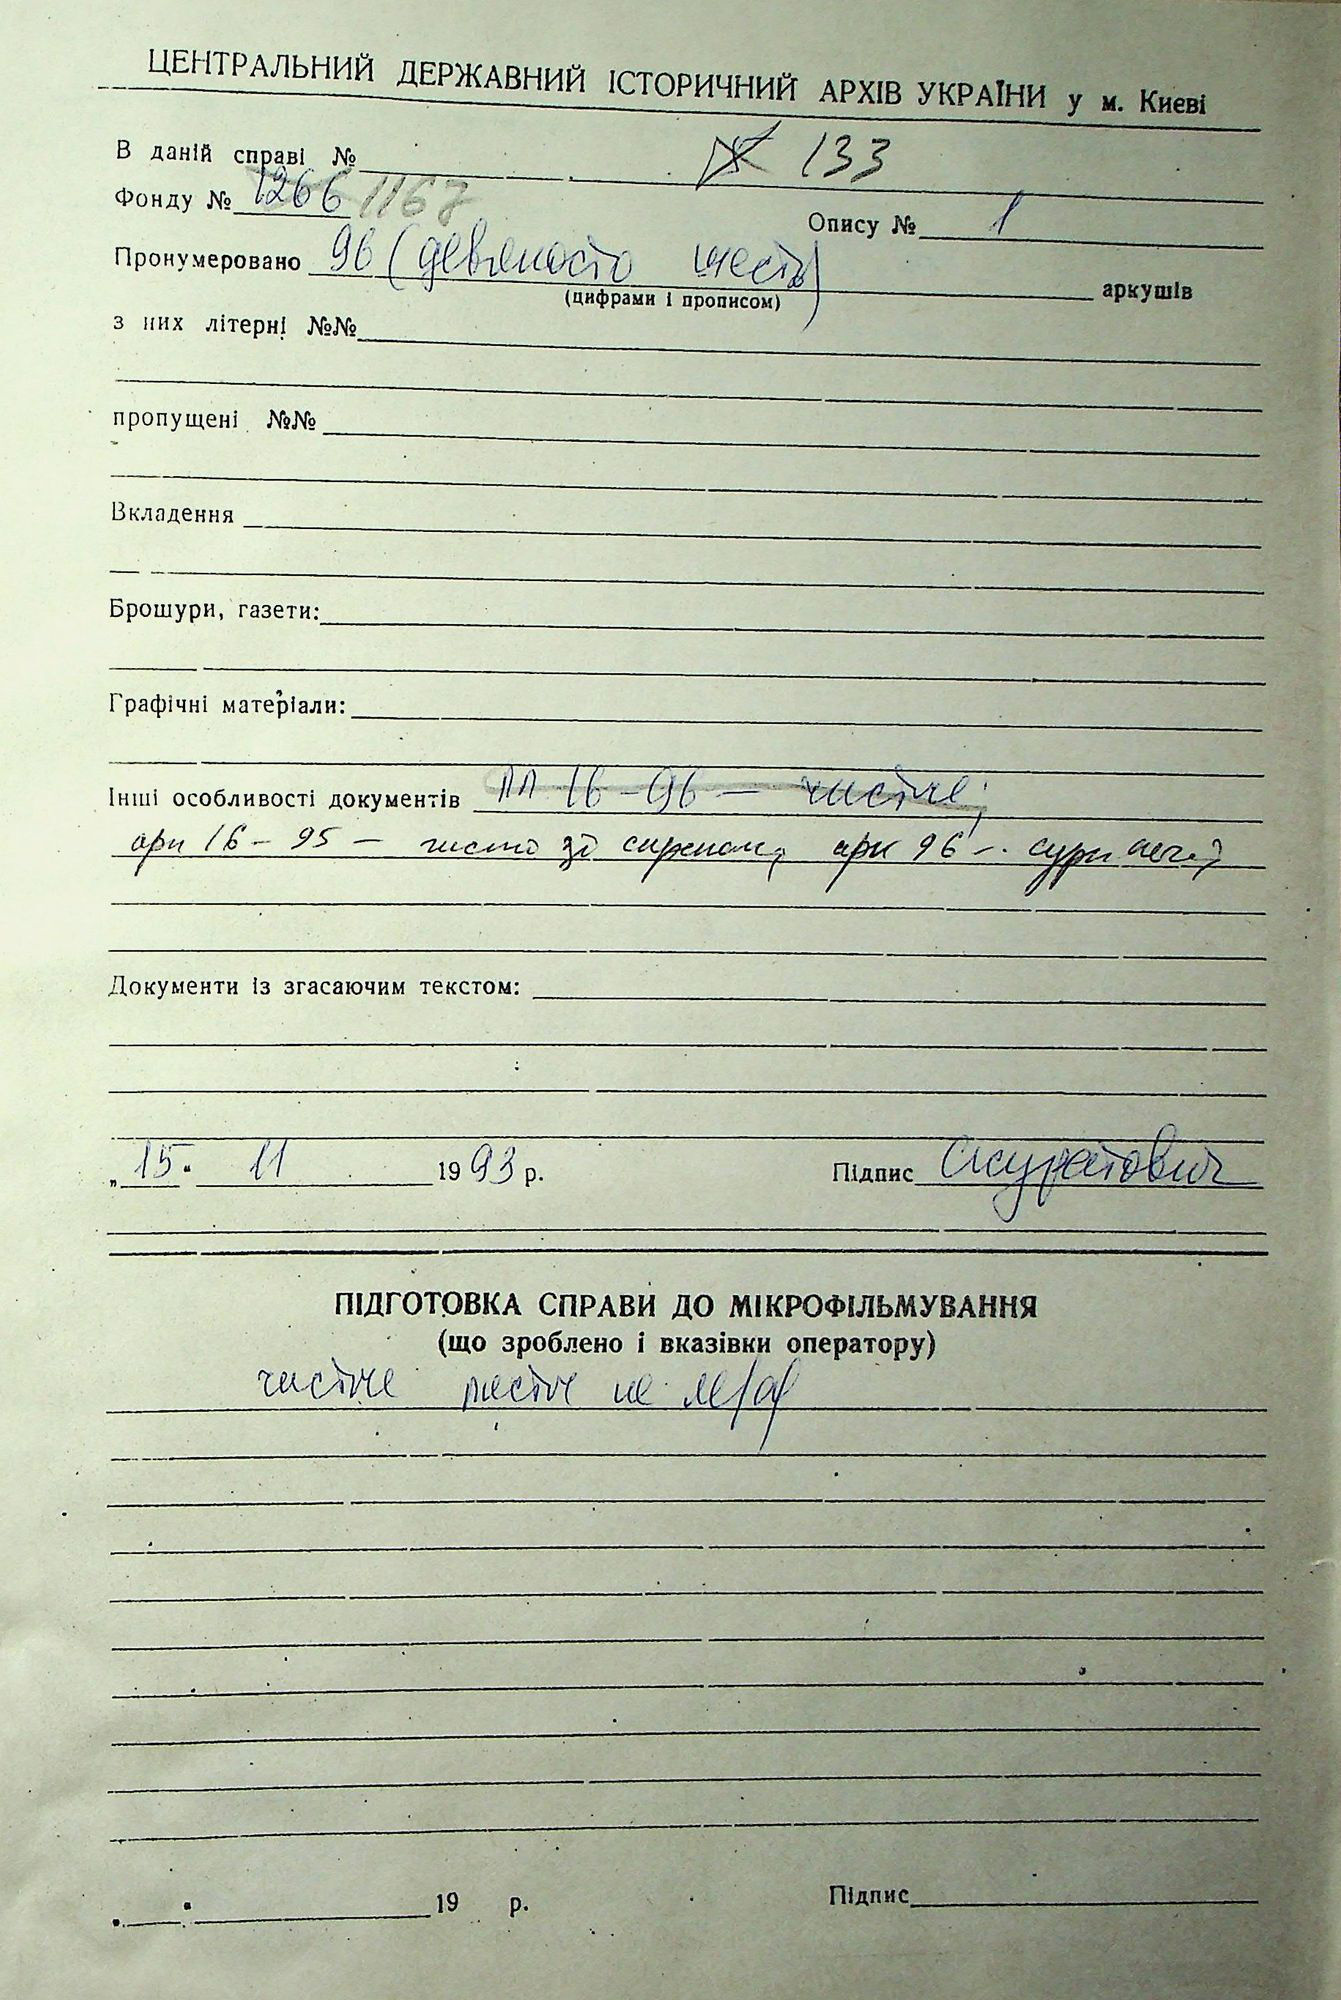 ЦЕНТРАЛЬНИЙ ДЕРЖАВНИЙ ІСТОРИЧНИЙ АРХІВ УКРАЇНИ у м. Києві
В даній справі № 133
Фонду № 1266 1167 Опису № 1
Пронумеровано 96 (девяносто шесть) аркушів
(цифрами і прописом)
з них літерні №№
пропущені №№
Вкладення
Брошури, газети:
Графічні матеріали:
Інші особливості документів 16-96 — чистые;
арк 16 - 95 - арк 96 -
Документи із згасаючим текстом:
„15" 11 1993 р. Підпис Скуратович
ПІДГОТОВКА СПРАВИ ДО МІКРОФІЛЬМУВАННЯ
(що зроблено і вказівки оператору)
чистые не
19 р. Підпис